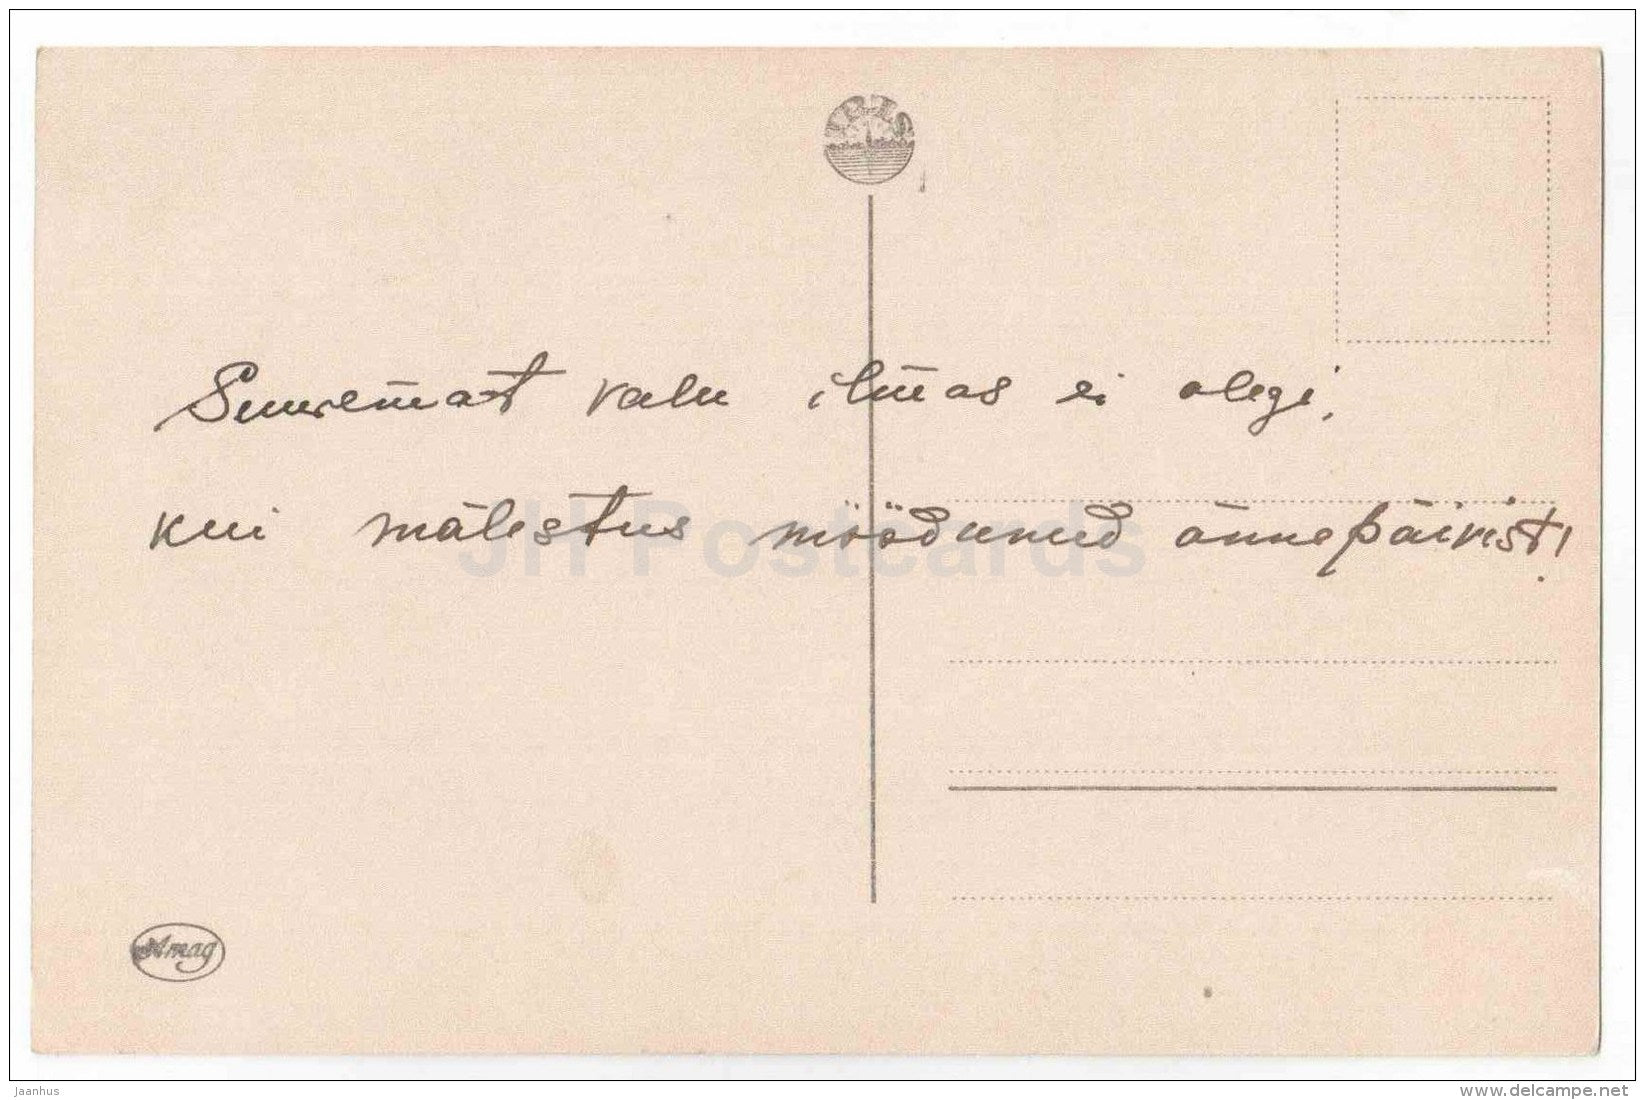 IRIS
Suuremat valu ilmas ei olegi,
kui mälestus möödunud õnnepäivist!
JH Postcards
Amag
jaanhus
www.delcampe.net